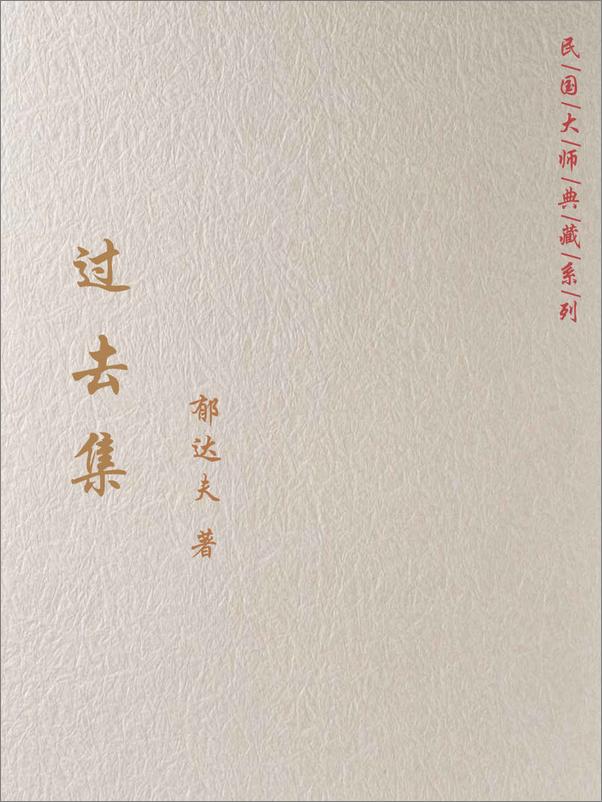 民国大师典藏系列
过去集
郁达夫 著